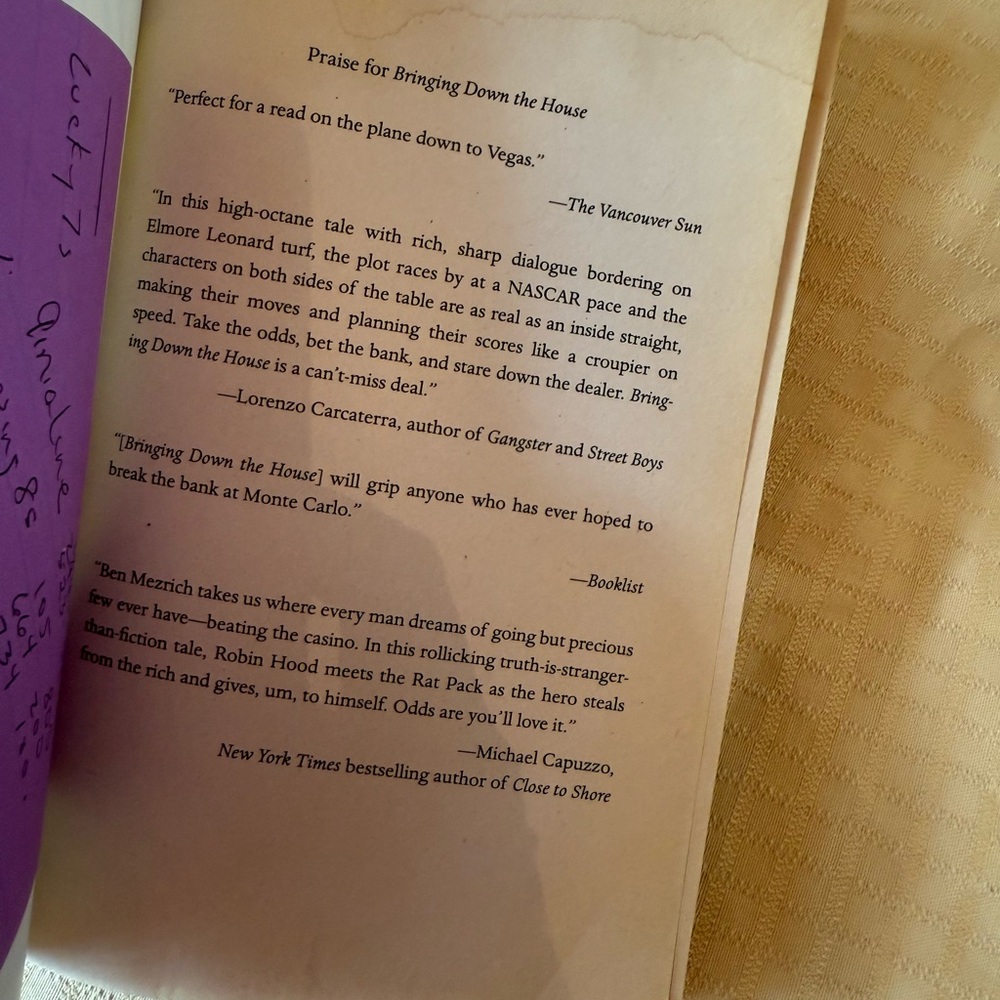 Lucky 7s
Praise for Bringing Down the House
“Perfect for a read on the plane down to Vegas.”
—The Vancouver Sun
“In this high-octane tale with rich, sharp dialogue bordering on
Elmore Leonard turf, the plot races by at a NASCAR pace and the
characters on both sides of the table are as real as an inside straight,
making their moves and planning their scores like a croupier on
speed. Take the odds, bet the bank, and stare down the dealer. Bring-
ing Down the House is a can’t-miss deal.”
—Lorenzo Carcaterra, author of Gangster and Street Boys
“[Bringing Down the House] will grip anyone who has ever hoped to
break the bank at Monte Carlo.”
—Booklist
“Ben Mezrich takes us where every man dreams of going but precious
few ever have—beating the casino. In this rollicking truth-is-stranger-
than-fiction tale, Robin Hood meets the Rat Pack as the hero steals
from the rich and gives, um, to himself. Odds are you’ll love it.”
—Michael Capuzzo,
New York Times bestselling author of Close to Shore